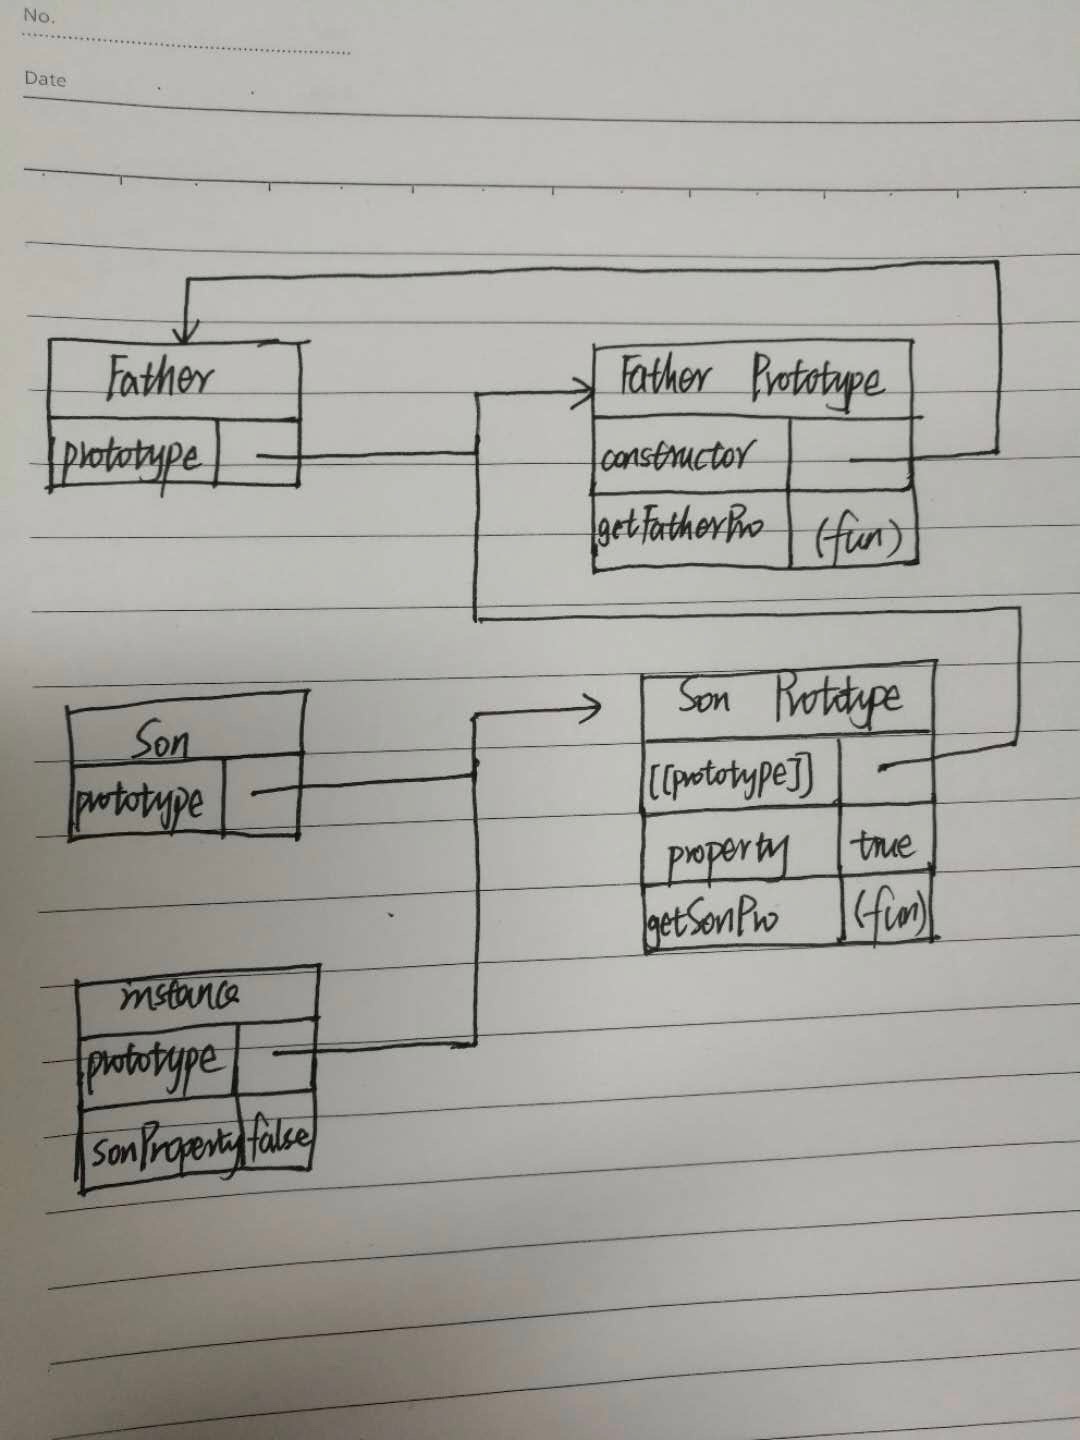 No.
Date
Father
prototype
Father Prototype
constructor
getFatherPro (fun)
Son
prototype
Son Prototype
[[prototype]]
property true
getSonPro (fun)
instance
prototype
sonProperty false